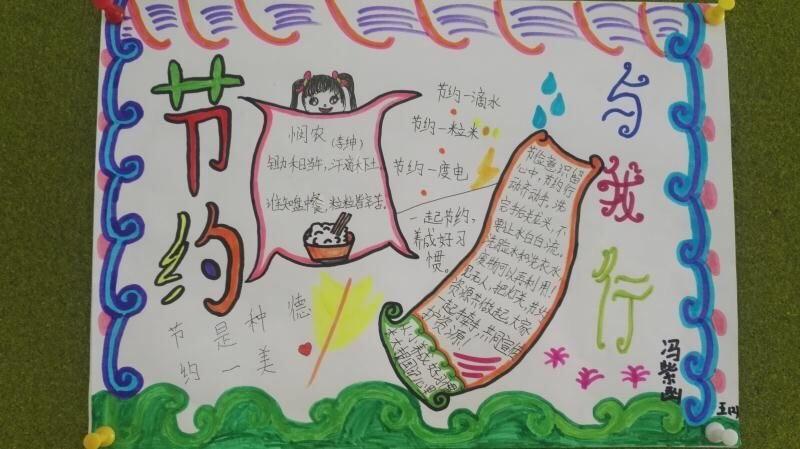 节约
与我行
悯农
(李绅)
锄禾日当午,汗滴禾下土。
谁知盘中餐,粒粒皆辛苦。
节约一滴水
节约一粒米
节约一度电
一起节约,
养成好习
惯。
节俭意识留
心中,节约行
动齐动手,洗
完手后关龙头,不
要让水白白流。
洗脸水和洗衣水
废物可以再利用!
见无人,把灯关,节约
资源并做起,大家
一起牵手,共同宣传
护资源!
节是种德
约一美
冯紫